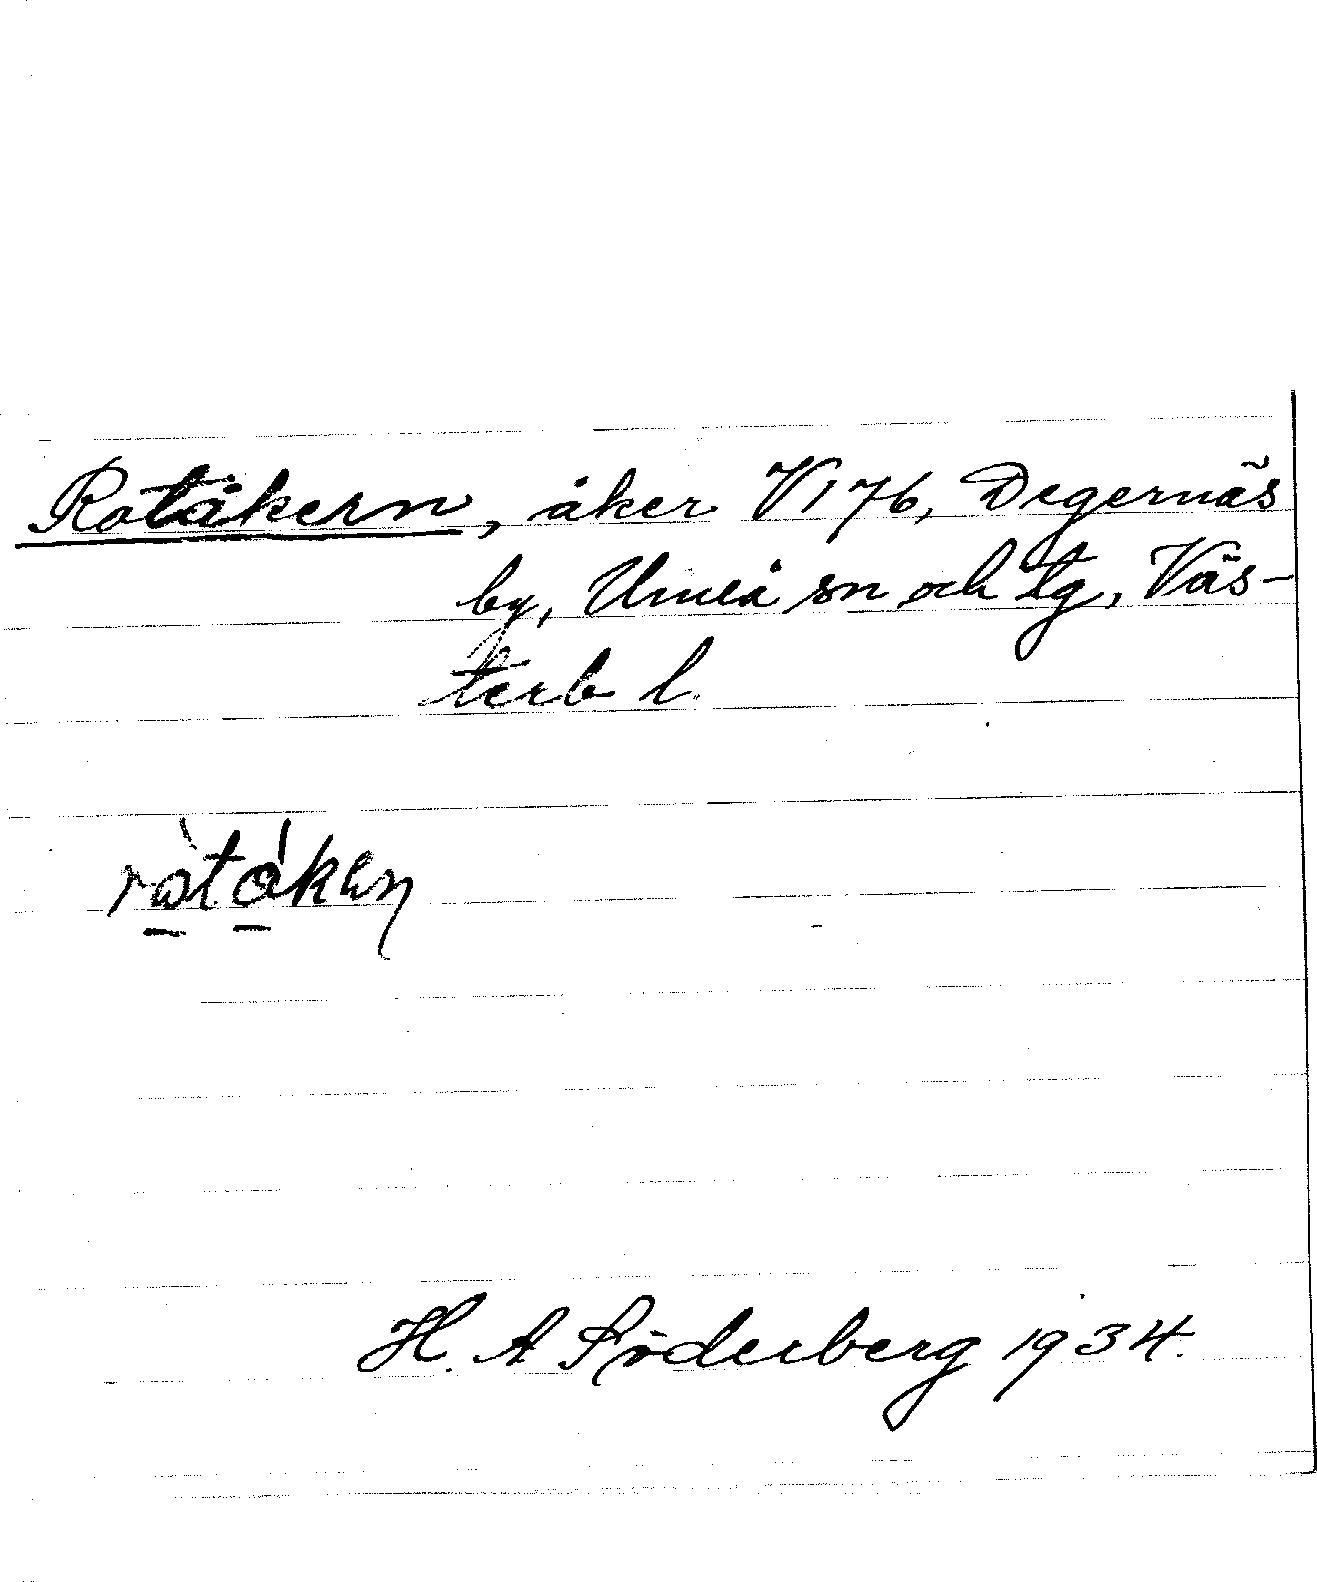 Rotåkern, åker VI 76, Degernäs
by, Umeå sn och tg, Väs-
terb l.
ròtákən
H. A Söderberg 1934.